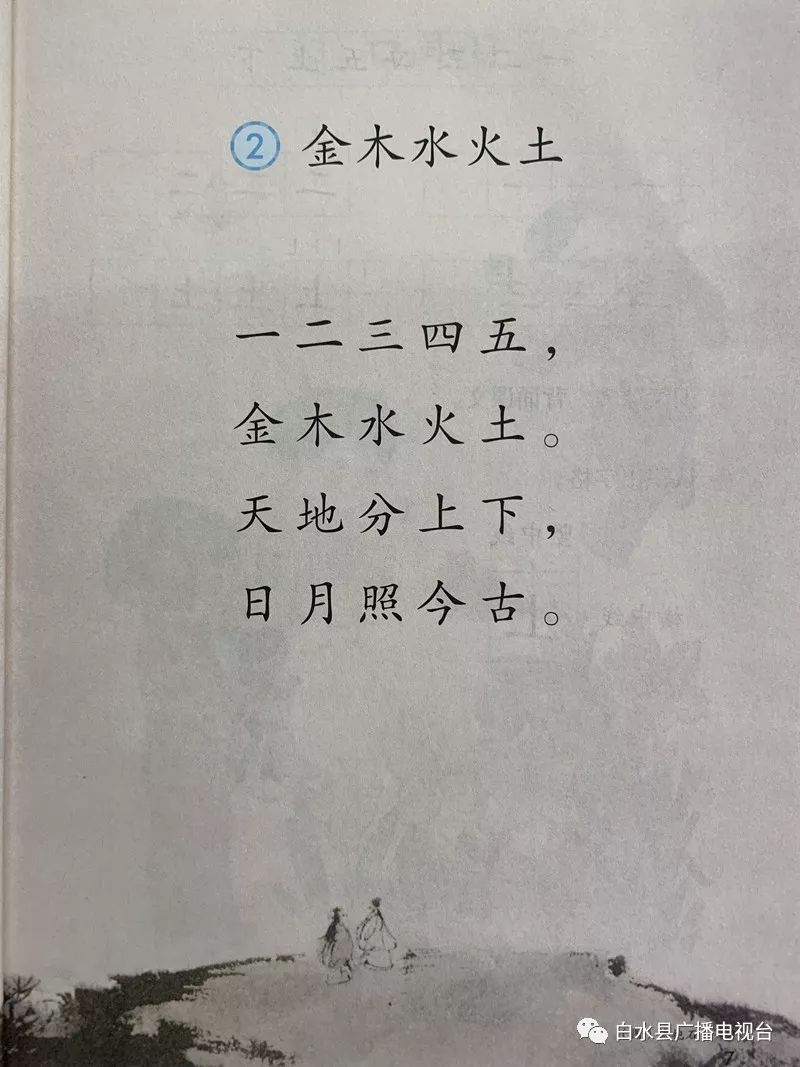 ② 金木水火土
一二三四五，
金木水火土。
天地分上下，
日月照今古。
白水县广播电视台
7